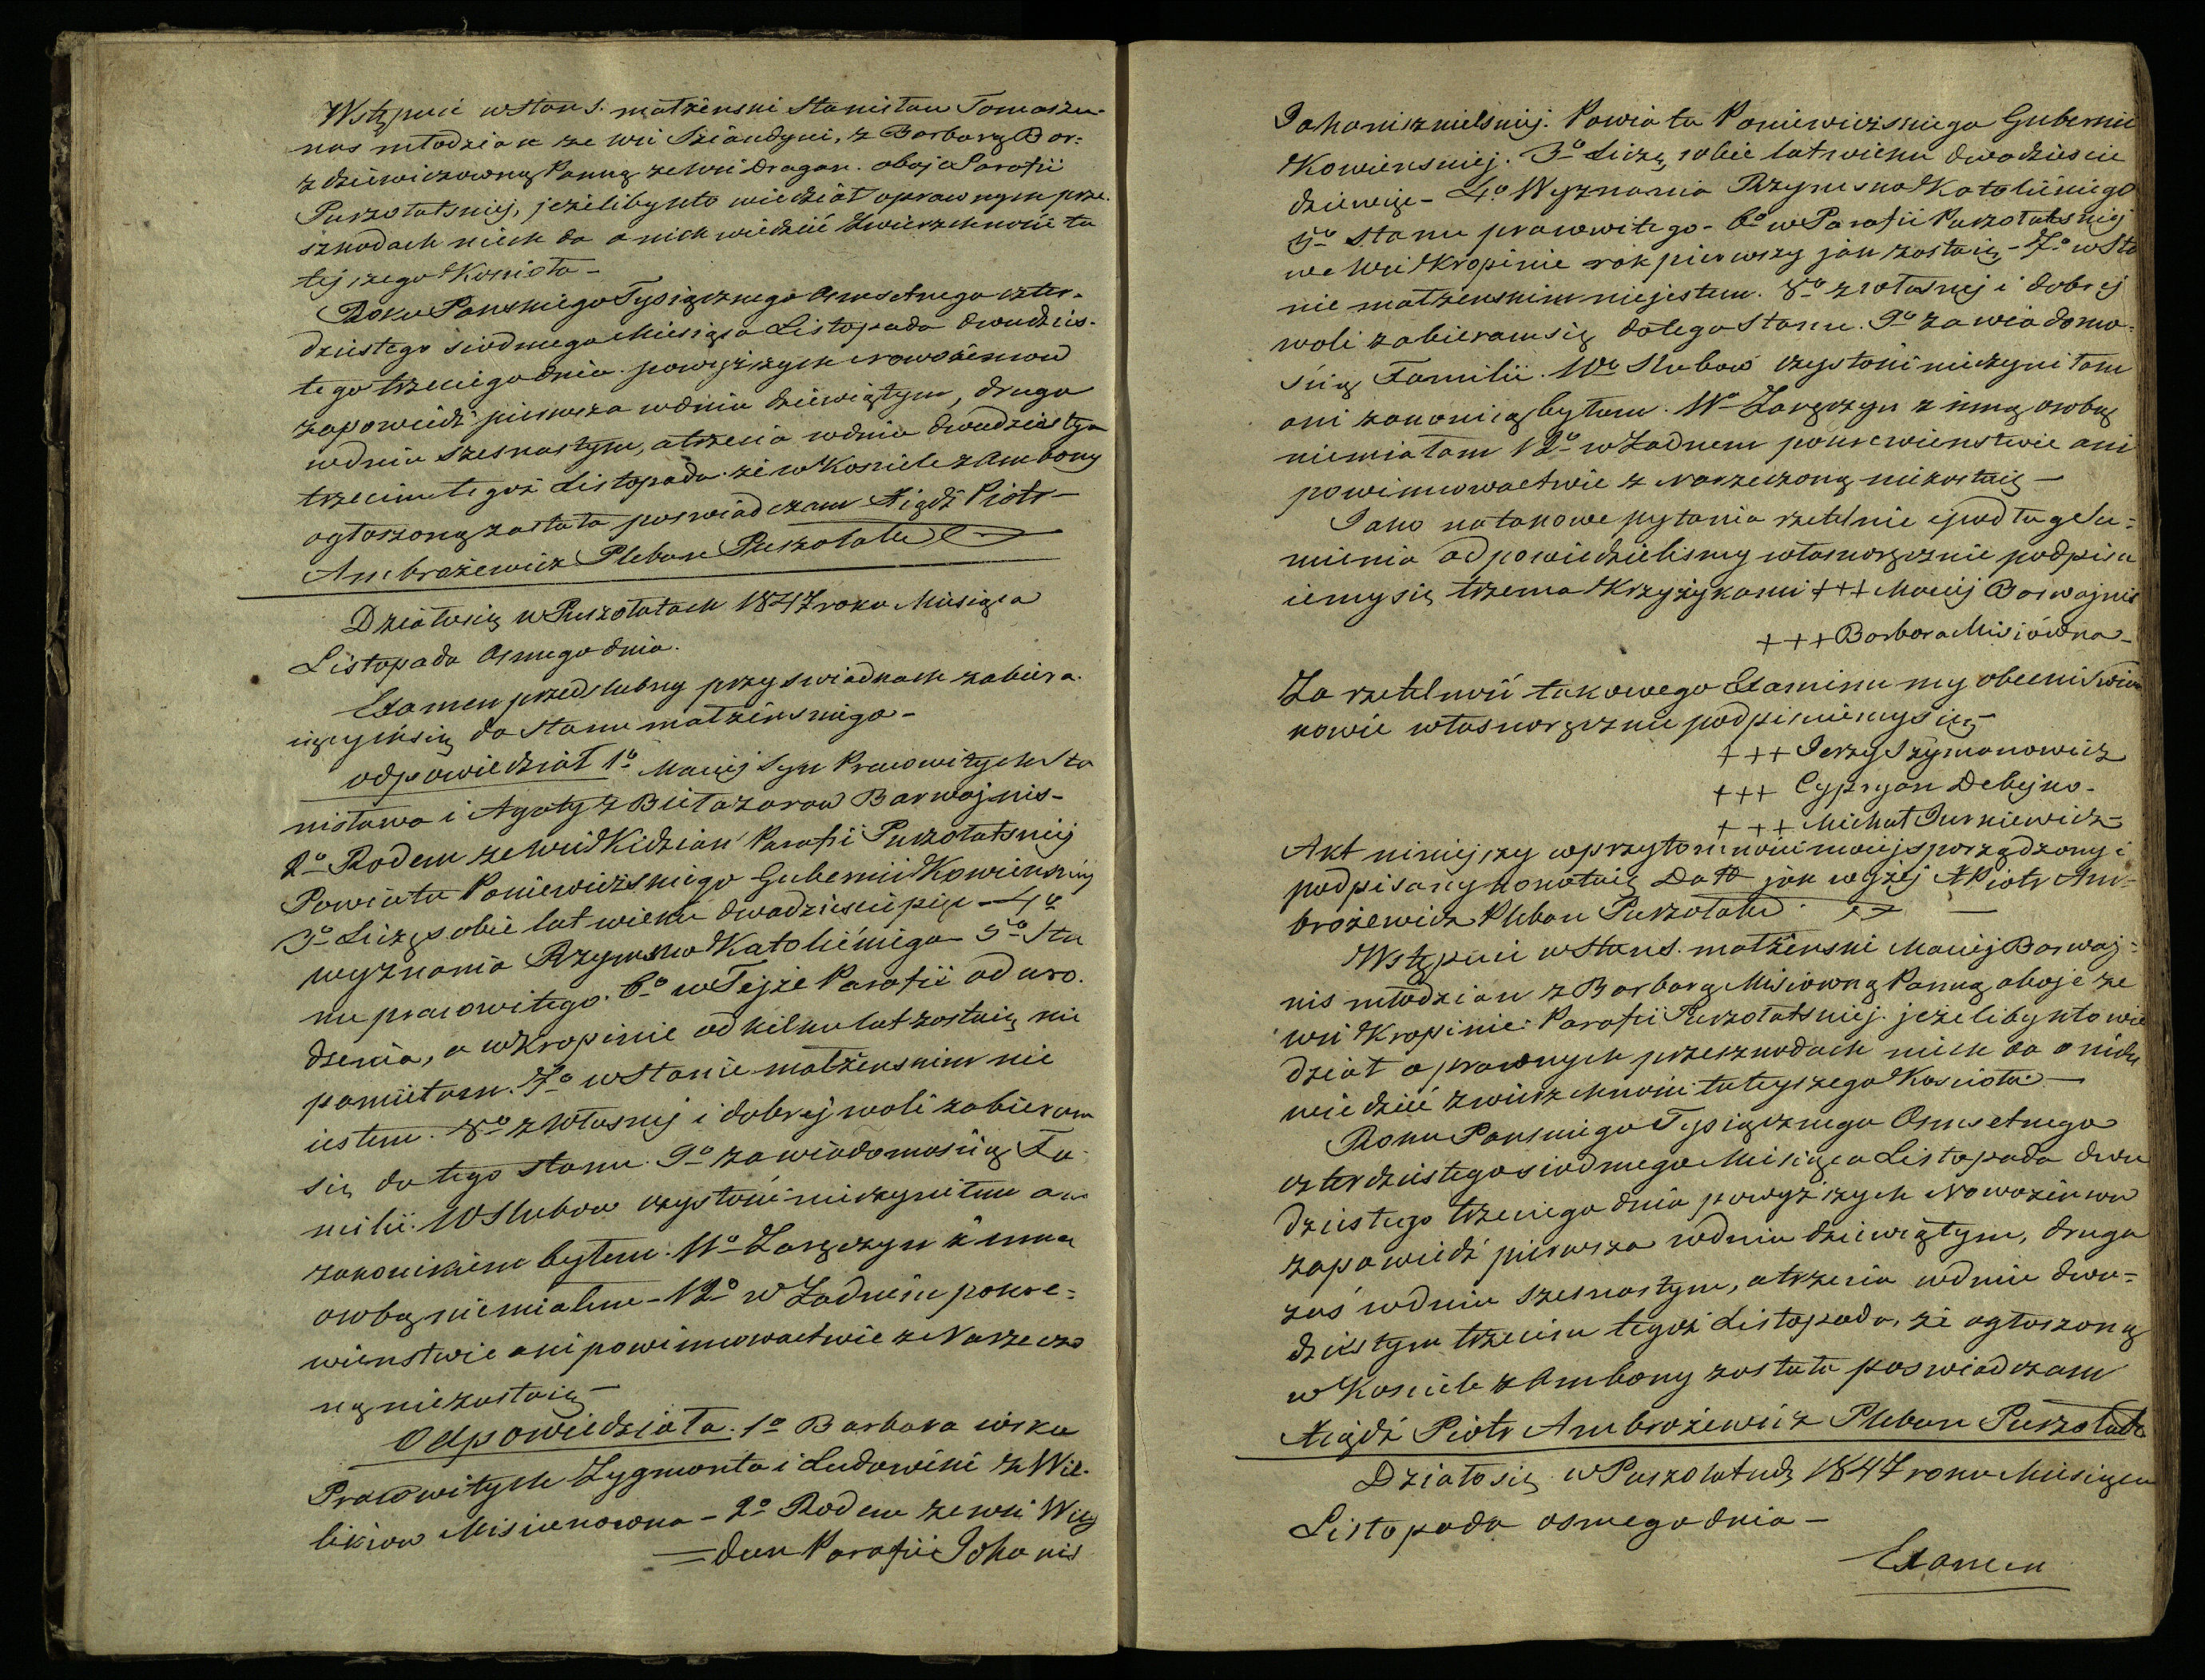 Wstąpić w stan S. małżenski Stanisław Tomaszu-
nas młodzian ze wsi Sziandyni, z Barbarą Bor-
zdziewiczowną Panną ze wsi Dragan. oboje Parafii
Puszołatskiej, jeżeliby kto wiedział o prawnym prze-
szkodach niech da o nich wiedzić Zwierzchności tu
tejszego Kosioła -
Roku Panskiego Tysiącznego Osmsetnego czter-
dziestego siodmego Miesiąca Listopada dwudzies-
tego trzeciego dnia powyższych Nowożencow
zapowiedź pierwsza w dniu dziewiątym, druga
w dniu szesnastym, a trzecia w dniu dwudziestym
trzecim tegoż Listopada że w Kosciele z Ambony
ogłoszoną została poswiadczam Xiądz Piotr
Ambrożewicz Pleban Puszołatsk
Działo się w Puszołatach 1847 roku Miesiąca
Listopada Osmego dnia.
Examen przedslubny przy swiadkach zabiera-
iącym się do Stanu małżenskiego -
odpowiedział 1o Maciej Syn Prawowitych Sta
nisława i Agaty z Butazarow Barwajnis -
2o Rodem ze wsi Kidzian Parafii Puszołatskiej
Powiatu Poniewiezskiego Gubernii Kowienskiej
3o Liczę sobie lat wieku dwadziescia pięc - 4o
wyznania Rzymsko Katolickiego 5o Sta
nu prawowitego. 6o w Tejże Parafii od uro-
dzenia, a w Kropinie od kilku lat zostaię nie
pamiętam. 7o w Stanie małżenskim nie
iestem. 8o z własnej i dobrej woli zabieram
się do tego stanu. 9o za wiadomością Fa-
milii. 10 Slubow czystości nieczyniłem ani
zakonikiem byłem. 11o Zaręczyn z inną
osobą niemiałem - 12o w Żadnem pokre-
wienstwie ani powinnowactwie z Narzeczo
ną niezostaię -
Odpowiedziała. 1o Barbara córka
Prawowitych Zygmonta i Ludowiki z Wil-
likiow Misiunowna - 2o Rodem ze wsi
= dun Parafii Johanis
Johaniszkielskiej. Powiatu Poniewiezskiego Gubernii
Kowienskiej. 3o Liczę sobie lat wieku dwadziescie
dziewięc - 4o Wyznania Rzymsko Katolickiego
5o Stanu prawowitego - 6o w Parafii Puszołatskiej
we Wsi Kropinie rok pierwszy jak zostaię - 7o w Sta
nie małżenskim niejestem. 8o z własnej i dobrej
woli zabieram się do tego Stanu. 9o za wiadomo-
ścią Familii. 10o Slubow czystości nieczyniłam
ani zakonicą byłam. 11o Zaręczyn z inną osobą
niemiałam 12o w Żadnem pokrewienstwie ani
powinnowactwie z Narzeczoną niezostaię -
Jako na takowe pytania rzetelnie i podług Su-
mienia odpowiedzielismy własnoręcznie podpisu
iemy się trzema Krzyżykami +++ Maciej Barwajnis
+++ Barbara Misiówna -
Za rzetelność takowego Examinu my obecni Swiad
kowie własnoręcznie podpisuiemy się -
+++ Jerzy Szymonowicz
+++ Cypryan Debejko -
+++ Michał Jurniewicz -
Akt niniejszy w przytomności mojej sporządzony i
podpisany konotuię Datt jak wyżej X Piotr Am-
brożewicz Pleban Puszołatsk
Wstąpić w Stan S. małżenski Maciej Barwaj-
nis młodzian z Barbarą Misiowną Panną, oboje ze
wsi Kropinie Parafii Puszołatskiej. jeżeliby kto wie
dział o prawnych przeszkodach niech da o nich
wiedzić zwierzchności tutejszego Kosciola -
Roku Panskiego Tysiącznego Osmsetnego
czterdziestego siodmego Miesiąca Listopada dwu
dziestego trzeciego dnia powyższych Nowożencow
zapowiedź pierwsza w dniu dziewiątym, druga
zaś w dniu szesnastym, a trzecia w dniu dwu-
dziestym trzecim tegoż Listopada, że ogłoszoną
w Kosciele z Ambony została poswiadczam
Xiądz Piotr Ambrożewicz Pleban Puszołatsk
Działo się w Puszołatach 1847 roku Miesiąca
Listopada osmego dnia -
Examen